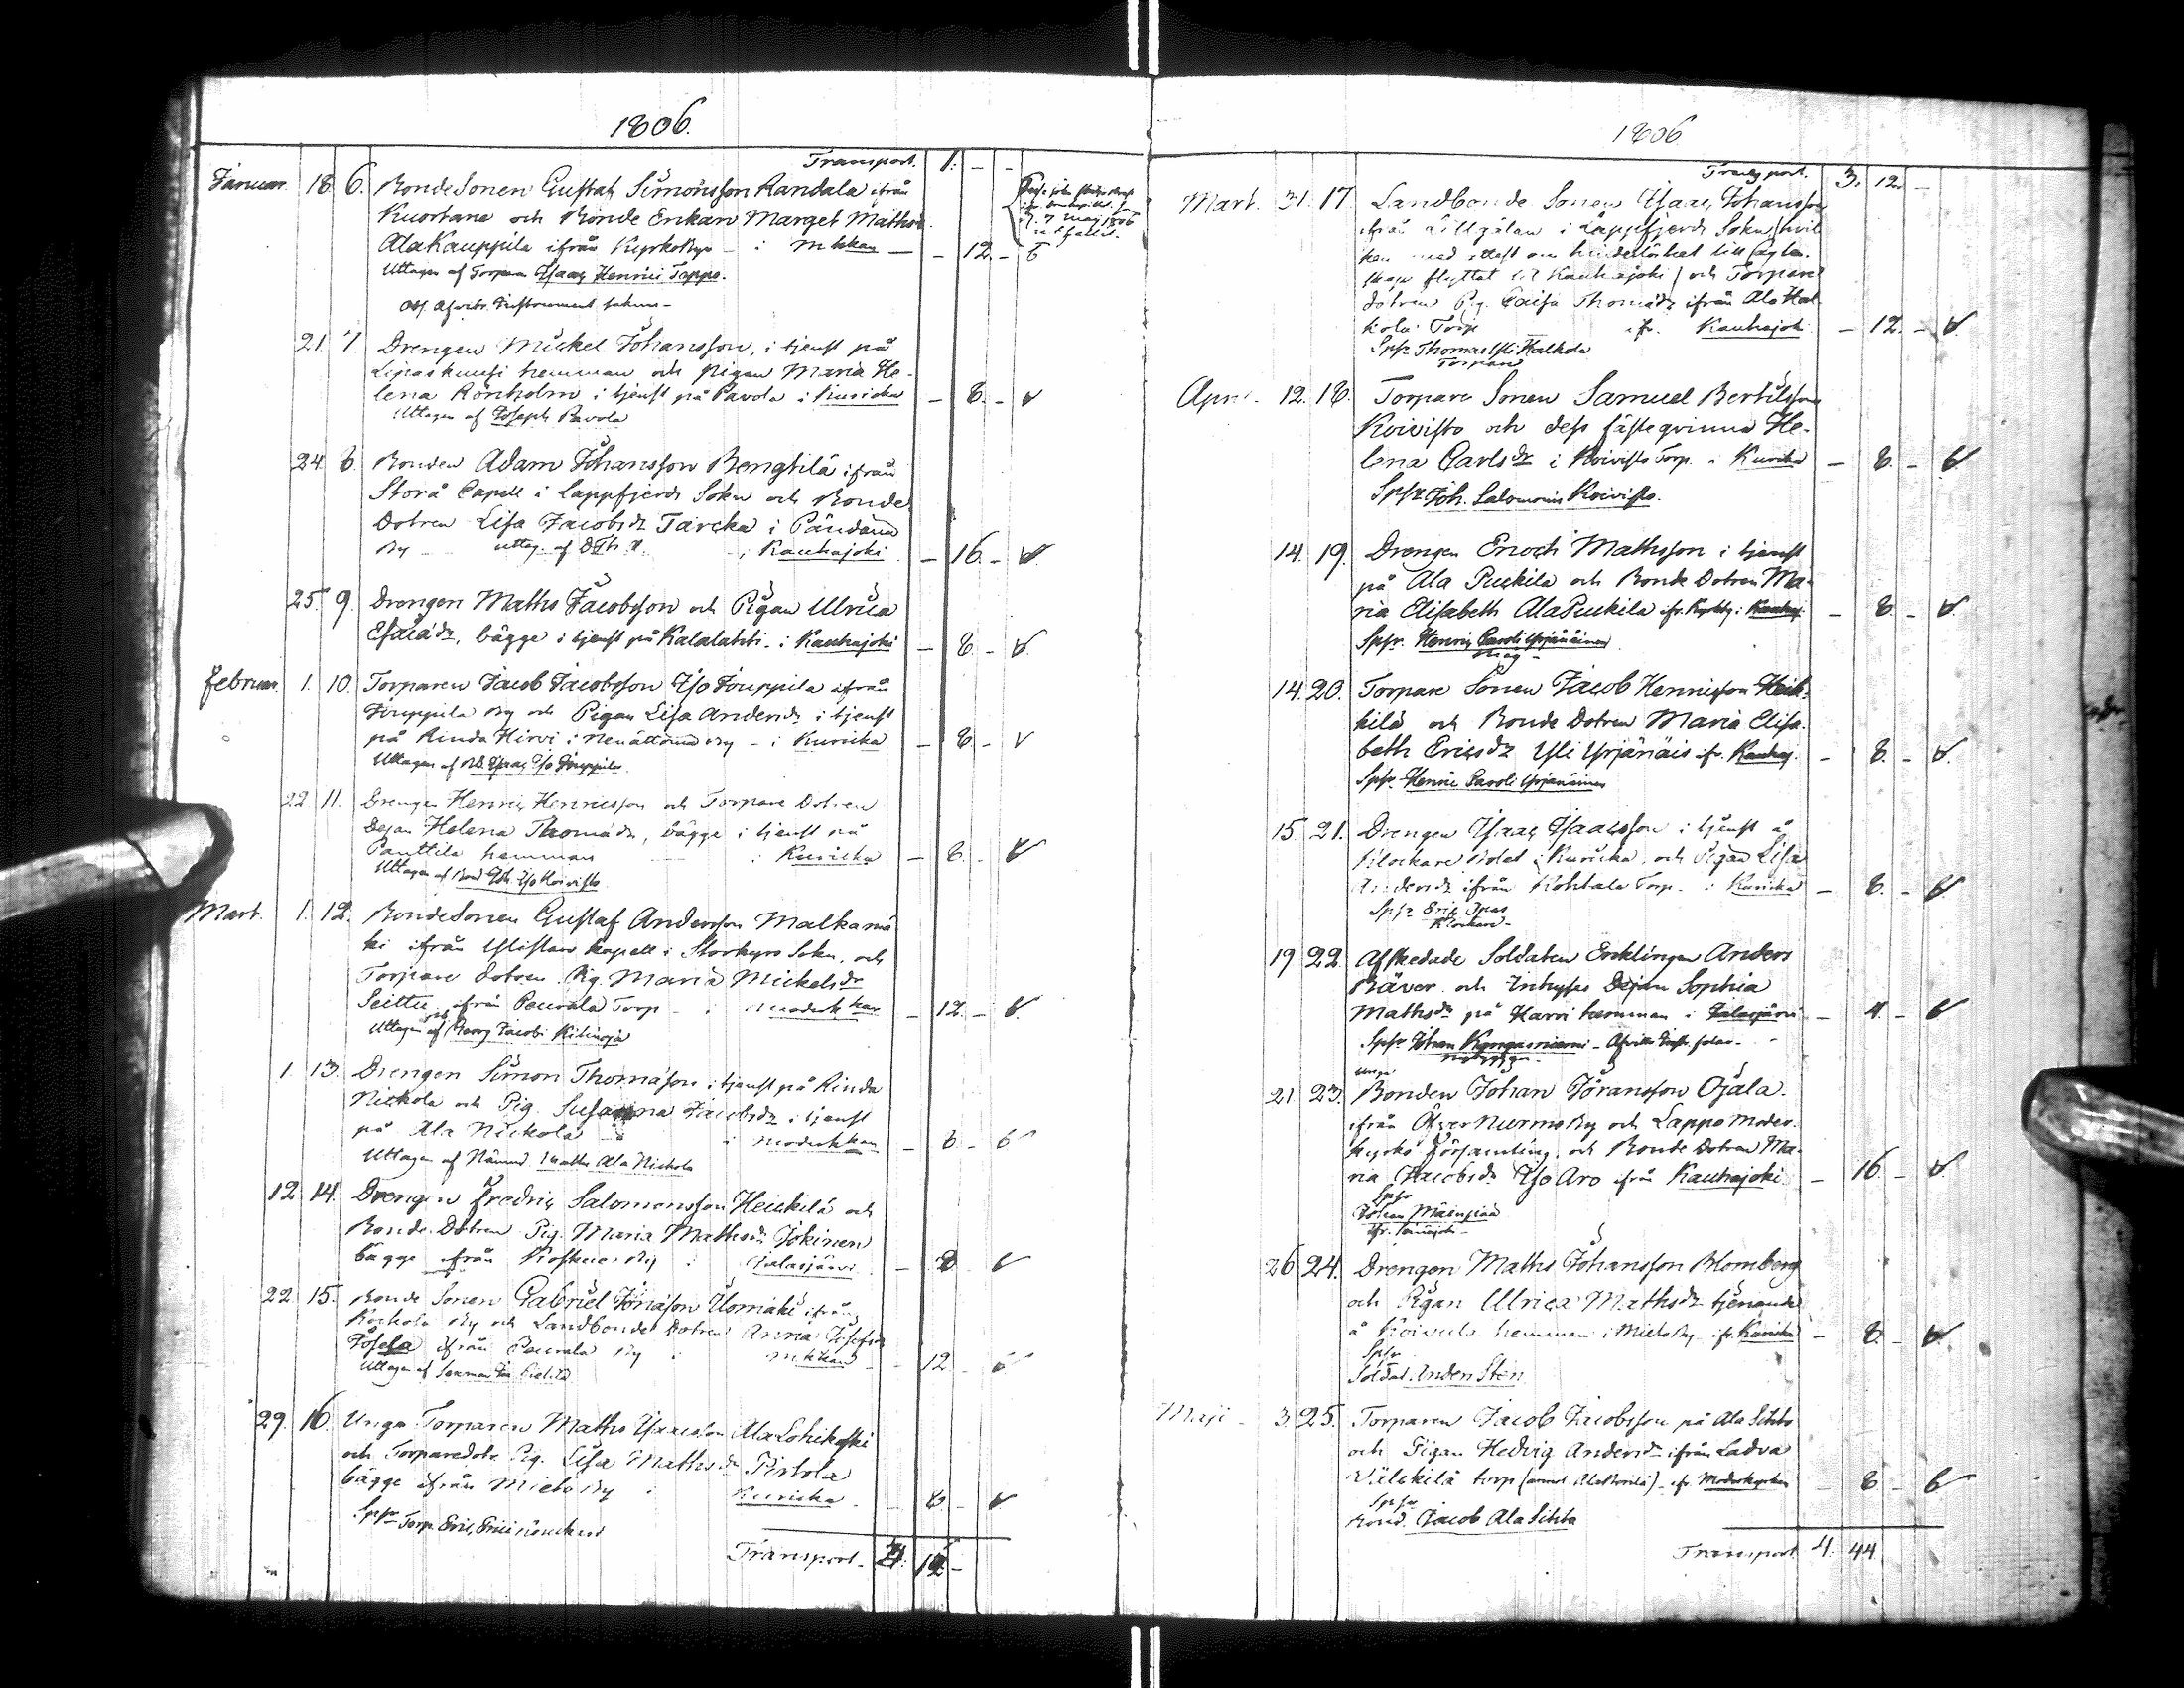 1806.
Transport. 1. - -
Januar. 18. 6. BondeSonen Gustaf Simonsson Randala ifrån
Kuortane och Bonde Enkan Marget Mathsd.
AlaKauppila ifrån Kyrkobyn - i Mkkan - - 12. -
Uttagen af Torparen Isaac Henrici Toppo.
21. 7. Drengen Mickel Johansson, i tjenst på
hemman och Pigan Maria He-
lena Rönholm i tjenst på Pavola i Kuricka - 8. -
Uttagen af Joseph Pavola
24. 8. Bonden Adam Johansson Bengtilä ifrån
Storå Capell i Lappfjerds Sokn och Bonde
Dotren Lisa Jacobsdr Tarcka i Päntäne
By - uttag. af i Kauhajoki - 16. -
25. 9. Drengen Maths Jacobsson och Pigan Ulrica
Esaiædr, bägge i tjenst på Kalalahti - i Kauhajoki - 8. -
Februar. 1. 10. Torparen Jacob Jacobsson Iso Jouppila ifrån
Jouppila By och Pigan Lisa Andersdr i tjenst
på Rinda Hirvi i Nenättömä By - i Kuricka - 8. -
Uttagen af Isaac Iso Jouppila.
22. 11. Drengen Henric Henricsson och Torpare Dotren
Dejan Helena Thomædr, bägge i tjenst på
Panttila hemman i Kuricka - 8. -
Uttagen af Bond. Joh. Iso Koivisto
Mart. 1. 12. BondeSonen Gustaf Andersson Malkamä
ki ifrån Ylistaro Kapell i Storkyro Sokn, och
Torpare dotren Pig. Maria Mickelsdr
Seittu ifrån Peurala Torp - i moderkkan - 12. -
Uttagen af Georg Jacobi
1. 13. Drengen Simon Thomæson i tjenst på Rinda
Nickola och Pig. Susanna Jacobsdr i tjenst
på Ala Nickola i moderkkan - 8 -
Uttagen af Nämnd. Maths Ala Nickola
12. 14. Drengen Fredric Salomonsson Heickilä och
Bonde Dotren Pig. Maria Mathsdr Jokinen
bägge ifrån Koskue By i Jalasjärvi - 8
22. 15. Bonde Sonen Gabriel Jonæson Ilomäki ifrån
Kockola By och Landbonde Dotren Anna Josefsdr
ifrån Peurala By i mkkan - 12
Uttagen af
29. 16. Unga Torparen Maths Isaacsson AlaLohikoski
och Torparedotr. Pig. Lisa Mathsdr Pistola
bägge ifrån Mieto By i Kuricka - 8 -
Spsr Torp. Eric Erici
Transport -
1806
Transport. 3. 12. -
Mart. 31. 17. Landbonde Sonen Isaac Johansson
ifrån Lillsjölan i Lappfjerds Sokn (hvil
ken med attest om hinderlöshet till Ägten-
skap flyttat til Kauhajoki) och Torpare
dotren Pig. Caisa Thomædr ifrån Ala Hal
kola Torp ifr. Kauhajoki - 12. -
Spsr Thomas Yli Halkola
Torpare
April. 12. 18. Torpare Sonen Samuel Bertilsson
Koivisto och dess fästeqvinna He-
lena Carlsdr i Koivisto Torp. i Kuricka - 8. -
Spsr Joh. Salomonis Koivisto.
14. 19. Drengen Enoch Mathsson i tjenst
på Ala Puckila och Bonde Dotren Ma-
ria Elisabeth AlaPuckila ifr. Kyrkby. i Kauhaj. - 8. -
Spsr. Henric Caroli Yrjänäinen
14. 20. Torpare Sonen Jacob Henricsson Heik-
kilä och Bonde Dotren Maria Elisa-
beth Ericsdr Yli Yrjänäis ifr. Kauhaj. - 8. -
Spsr. Henric Caroli Yrjänäinen
15. 21. Drengen Isaac Isaacsson i tjenst å
Klockare Bolet i Kuricka, och Pigan Lisa
Andersdr ifrån Kohtala Torp. i Kuricka - 8. -
Spsr Eric Ipas
Klockare -
19 22. Afskedade Soldaten Encklingen Anders
Bäver och Inhyses Dejan Sophia
Mathsdr på Harri hemman i Jalasjärvi - 4. -
Spsr Johan -
Nybyggare -
Unga
21. 23. Bonden Johan Göransson Ojala
ifrån Öfver Nurmo By och Lappo Moder-
kyrko församling, och Bonde Dotren Ma-
ria Jacobsdr Iso Aro ifrån Kauhajoki - 16. -
Spsr
Johan
26 24. Drengen Maths Johansson Blomberg
och Pigan Ulrica Mathsdr tjenande
å hemman i Mieto By. ifr. Kuricka - 8. -
Spsr
Soldat. Anders Sten
Maji - 3 25. Torparen Jacob Jacobsson på Ala Sihto
och Pigan Hedvig Andersdr ifrån Ladva
Välckilä torp - ifr. Moderkyrkan - 8 -
Spsr
Bond. Jacob Ala Sihto
Transport 4. 44